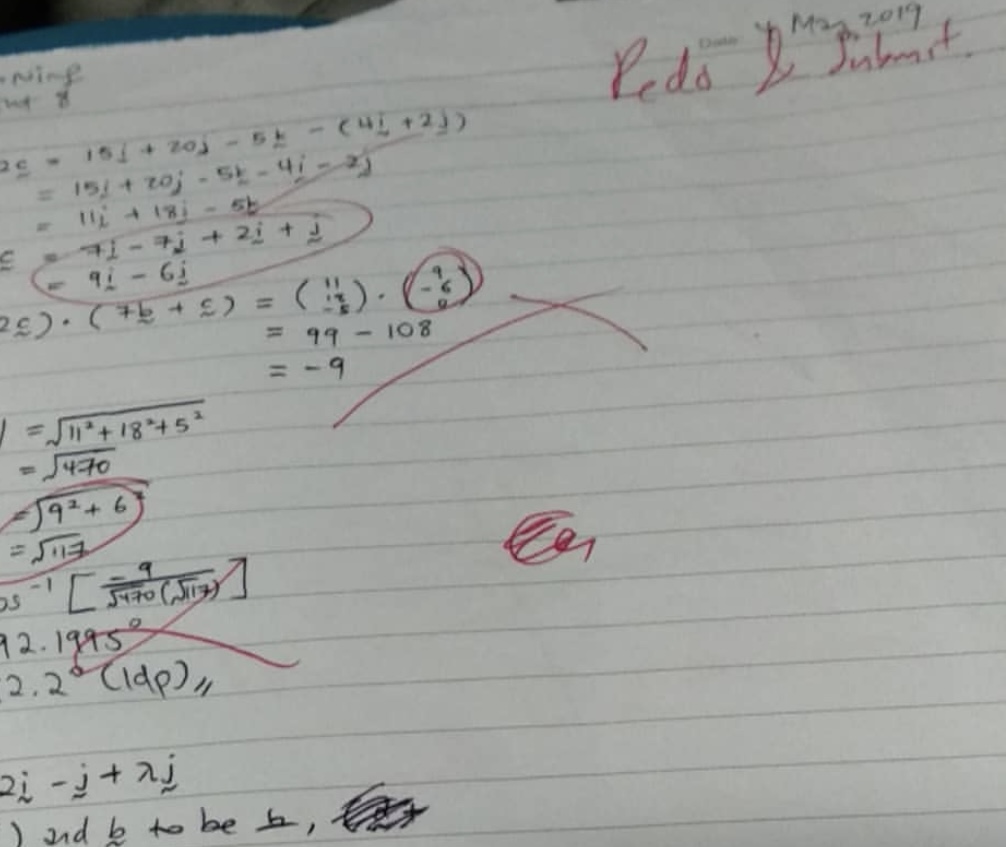 May 2019
Redo & Submit.
2c = 15i + 20j - 5k - (4i + 2j)
= 15i + 20j - 5k - 4i - 2j
= 11i + 18j - 5k
c = 7i - 7j + 2i + j
= 9i - 6j
2c) · (7b + c) = (11 18 -5) · (9 -6 0)
= 99 - 108
= -9
| = √11² + 18² + 5²
= √470
= √9² + 6²
= √117
os⁻¹ [-9/√470(√117)]
92.1995°
2.2° (1dp)
2i - j + λj
) and b to be